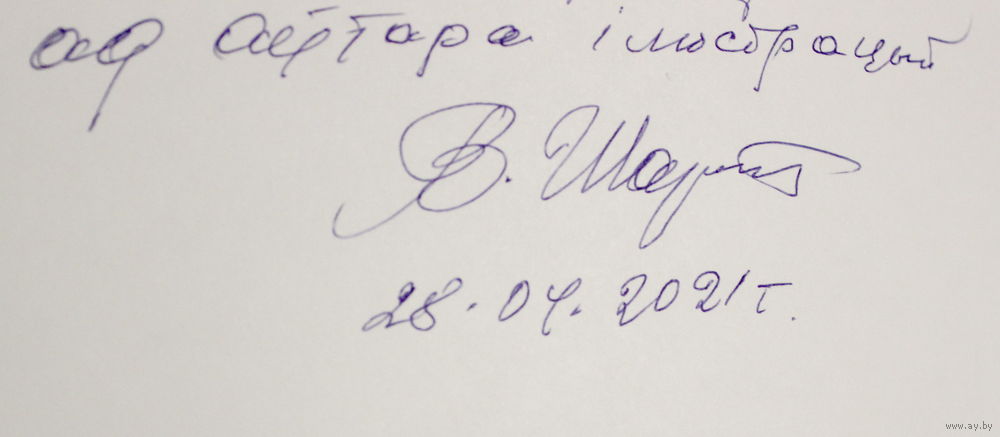 ад аўтара ілюстрацый
В. Шар
28.04.2021 г.
www.ay.by